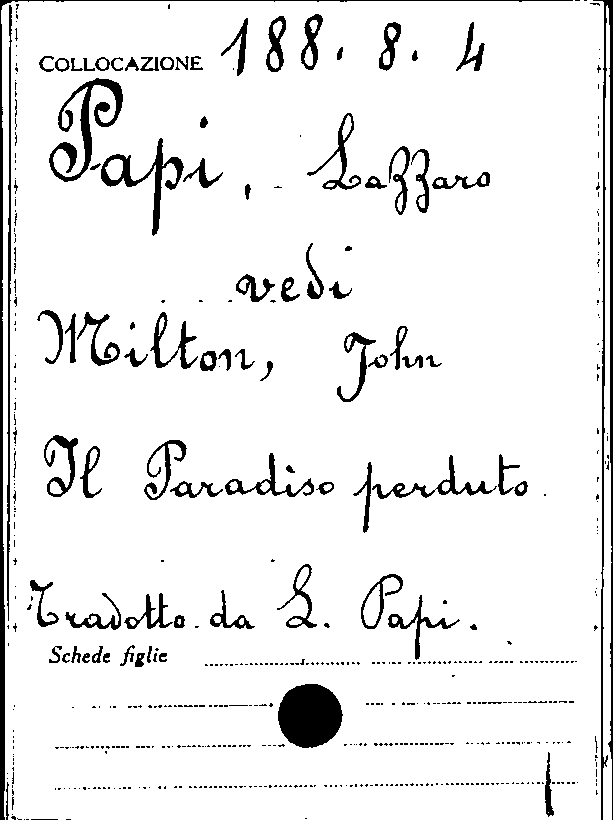 COLLOCAZIONE 188. 8. 4
Papi, Lazzaro
vedi
Milton, John
Il Paradiso perduto
Tradotto da L. Papi.
Schede figlie